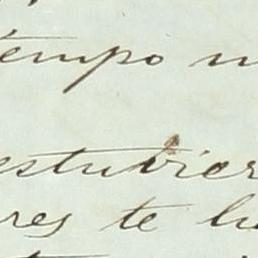 tempo n
estuvier
res te h